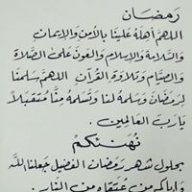 رمضان
اللهم أهله علينا بالأمن والإيمان
والسلامة والإسلام والعون على الصلاة
والصيام وتلاوة القرآن اللهم سلمنا
لرمضان وسلمه لنا وتسلمه منا متقبلا
يارب العالمين.
نهنئكم
بحلول شهر رمضان الفضيل جعلنا الله
وإياكم من عتقاءه من النار.